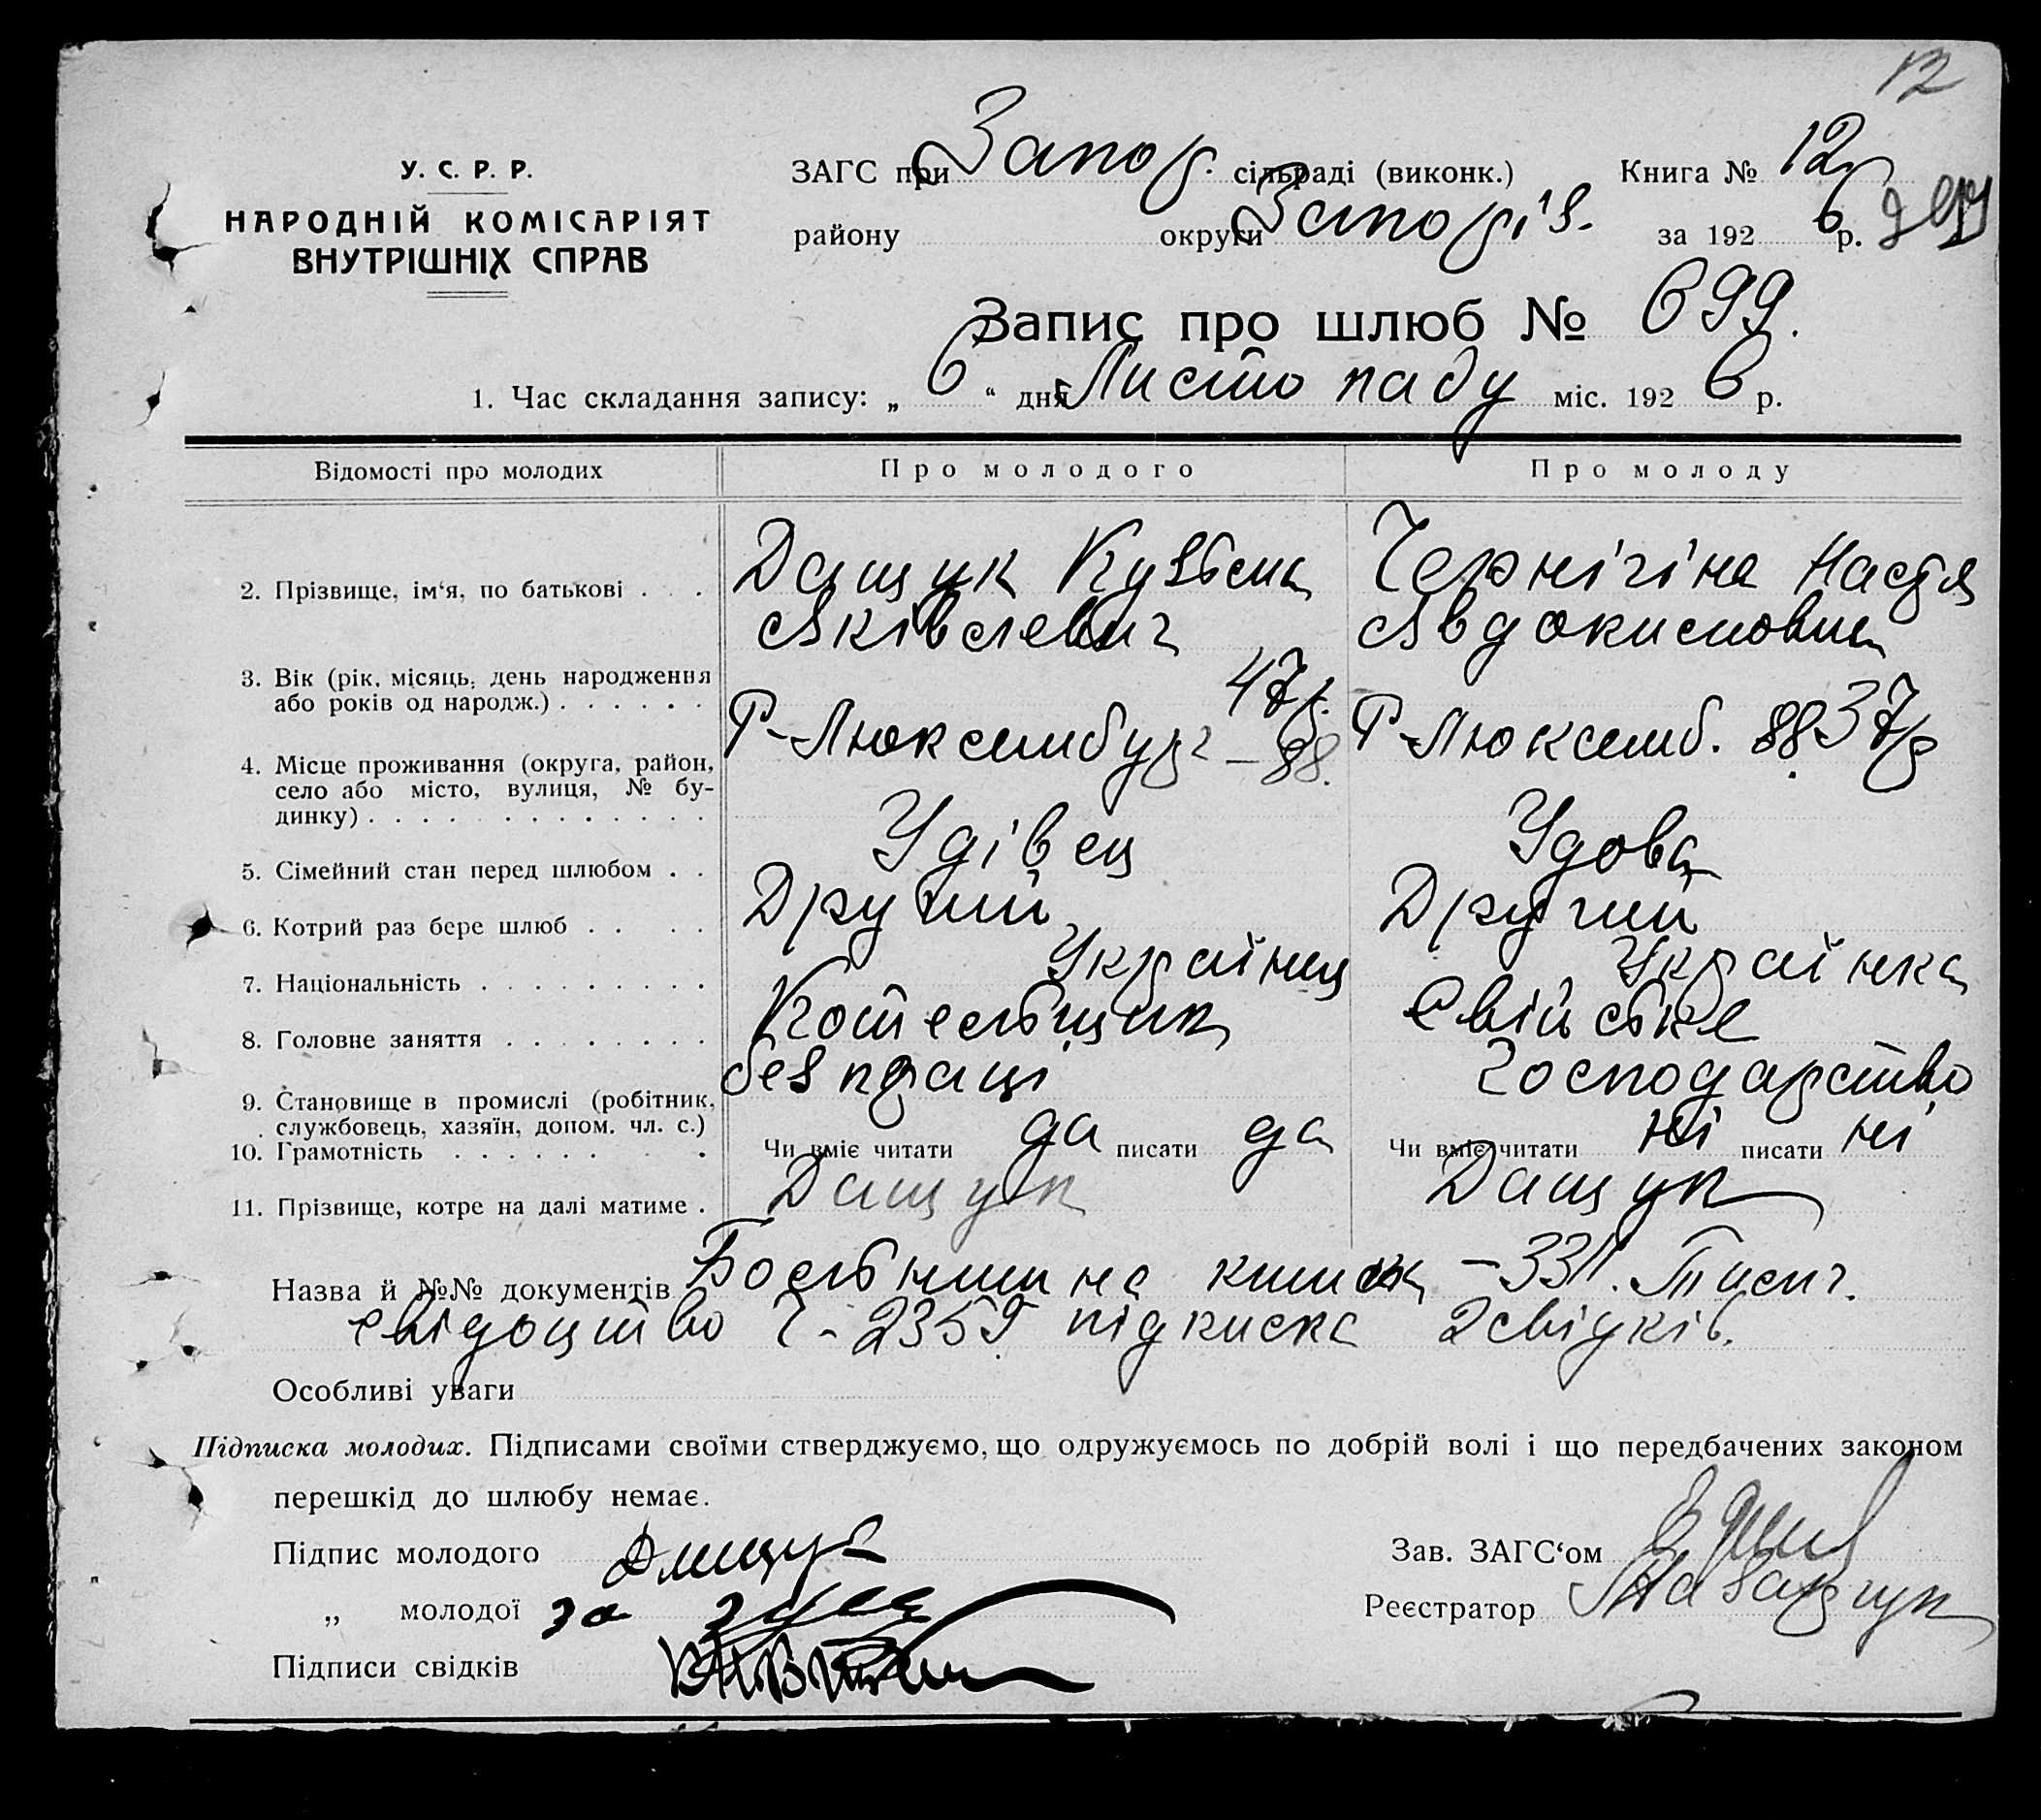 12
У. С. Р. Р.
НАРОДНІЙ КОМІСАРІЯТ
ВНУТРІШНІХ СПРАВ
ЗАГС при Запор. сільраді (виконк.) Книга № 12
району округи Запоріз. за 1926 р.
Запис про шлюб № 699.
1. Час складання запису: „ 6 “ дня Листопаду міс. 1926 р.
Відомості про молодих Про молодого Про молоду
2. Прізвище, ім‘я, по батькові . . . Дащук Кузьма Чернігіна Настя
Яківлевич Явдокимовна
3. Вік (рік, місяць, день народження
або років од народж.) . . . . . . 47 р. 37 р
4. Місце проживання (округа, район,
село або місто, вулиця, № бу-
динку) . . . . . . . . . . . . . Р-Люксембург - 88. Р-Люксемб. 88
5. Сімейний стан перед шлюбом . . Удівец Удова
6. Котрий раз бере шлюб . . . . Другий Другий
7. Національність . . . . . . . . . Українец Українка
8. Головне заняття . . . . . . . . Котельщик Свійське
9. Становище в промислі (робітник,
службовець, хазяїн, допом. чл. с.) без праці господарство
10. Грамотність . . . . . . . Чи вміє читати да писати да Чи вміє читати ні писати ні
11. Прізвище, котре на далі матиме . Дащук Дащук
Назва й №№ документів Больнична книжка - 331.
свідоцтво Ч- 2359 підписка 2 свідків.
Особливі уваги
Підписка молодих. Підписами своїми стверджуємо, що одружуємось по добрій волі і що передбачених законом
перешкід до шлюбу немає.
Підпис молодого Дащук Зав. ЗАГС‘ом
„ молодої за Реєстратор Назарчук
Підписи свідків